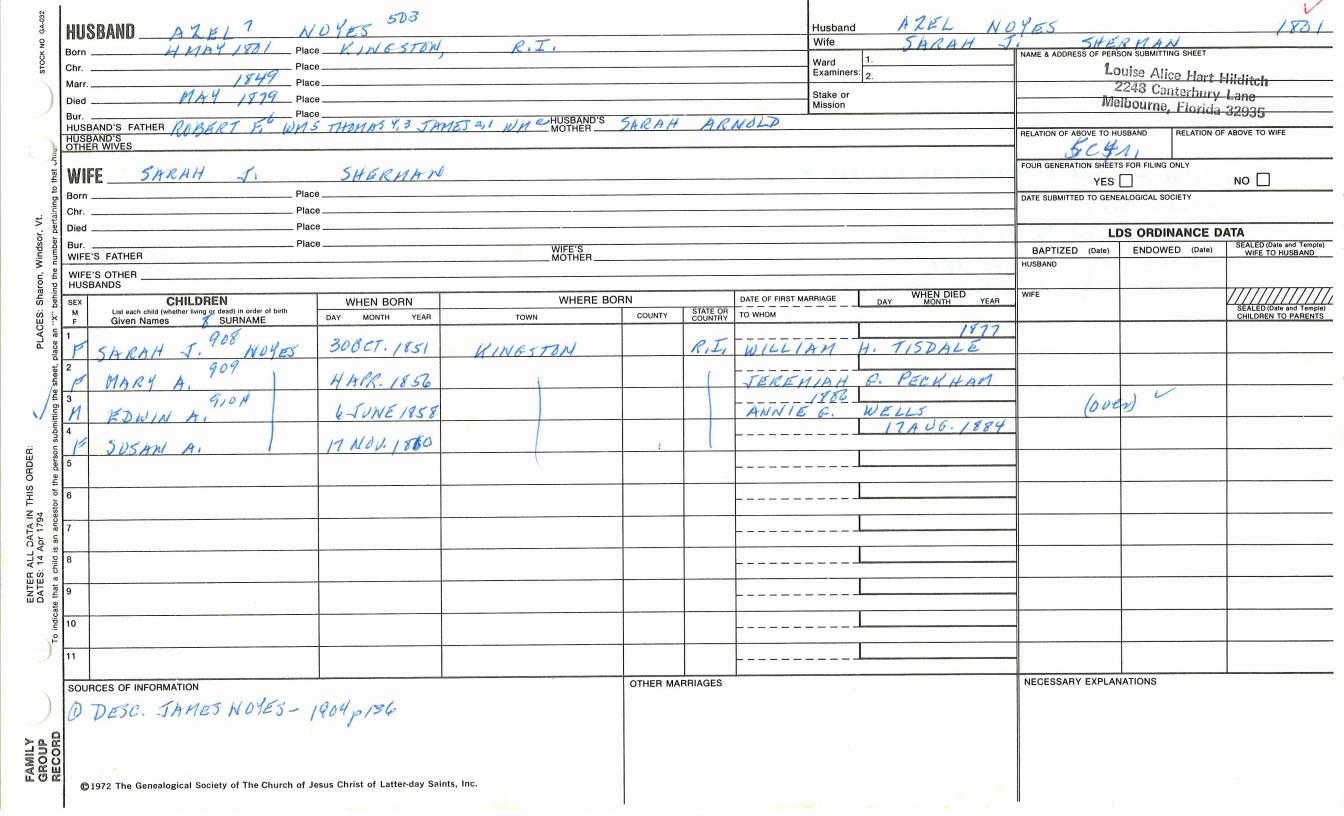 STOCK NO. GA-032
HUSBAND AZEL 7 NOYES 503
Born 4 MAY 1801 Place KINGSTON, R.I.
Chr. Place
Marr. 1849 Place
Died MAY 1879 Place
Bur. Place
HUSBAND'S FATHER ROBERT F.6 WM5 THOMAS 4,3 JAMES 2,1 WM HUSBAND'S MOTHER SARAH ARNOLD
HUSBAND'S OTHER WIVES
Husband AZEL NOYES 1801
Wife SARAH J. SHERMAN
Ward Examiners: 1.
2.
Stake or Mission
NAME & ADDRESS OF PERSON SUBMITTING SHEET
Louise Alice Hart Hilditch
2248 Canterbury Lane
Melbourne, Florida 32935
RELATION OF ABOVE TO HUSBAND RELATION OF ABOVE TO WIFE
FOUR GENERATION SHEETS FOR FILING ONLY
YES NO
DATE SUBMITTED TO GENEALOGICAL SOCIETY
WIFE SARAH J. SHERMAN
Born Place
Chr. Place
Died Place
Bur. Place
WIFE'S FATHER WIFE'S MOTHER
WIFE'S OTHER HUSBANDS
LDS ORDINANCE DATA
BAPTIZED (Date) ENDOWED (Date) SEALED (Date and Temple) WIFE TO HUSBAND
HUSBAND
WIFE
SEALED (Date and Temple) CHILDREN TO PARENTS
SEX M F
CHILDREN
List each child (whether living or dead) in order of birth
Given Names 8 SURNAME
WHEN BORN
DAY MONTH YEAR
WHERE BORN
TOWN COUNTY STATE OR COUNTRY
DATE OF FIRST MARRIAGE
TO WHOM
WHEN DIED
DAY MONTH YEAR
1 F SARAH J. 908 NOYES 30 OCT. 1851 KINGSTON R.I. WILLIAM H. TISDALE 1877
2 F MARY A. 909 4 APR. 1856 JEREMIAH G. PECKHAM
3 M EDWIN A. 910A 6 JUNE 1858 1886 ANNIE G. WELLS (over)
4 F SUSAN A. 17 NOV. 1860 17 AUG. 1884
5
6
7
8
9
10
11
SOURCES OF INFORMATION
① DESC. JAMES NOYES - 1904 p 136
OTHER MARRIAGES
NECESSARY EXPLANATIONS
©1972 The Genealogical Society of The Church of Jesus Christ of Latter-day Saints, Inc.
FAMILY GROUP RECORD
ENTER ALL DATA IN THIS ORDER:
DATES: 14 Apr 1794
PLACES: Sharon, Windsor, Vt.
To indicate that a child is an ancestor of the person submitting the sheet, place an "X" behind the number pertaining to that child